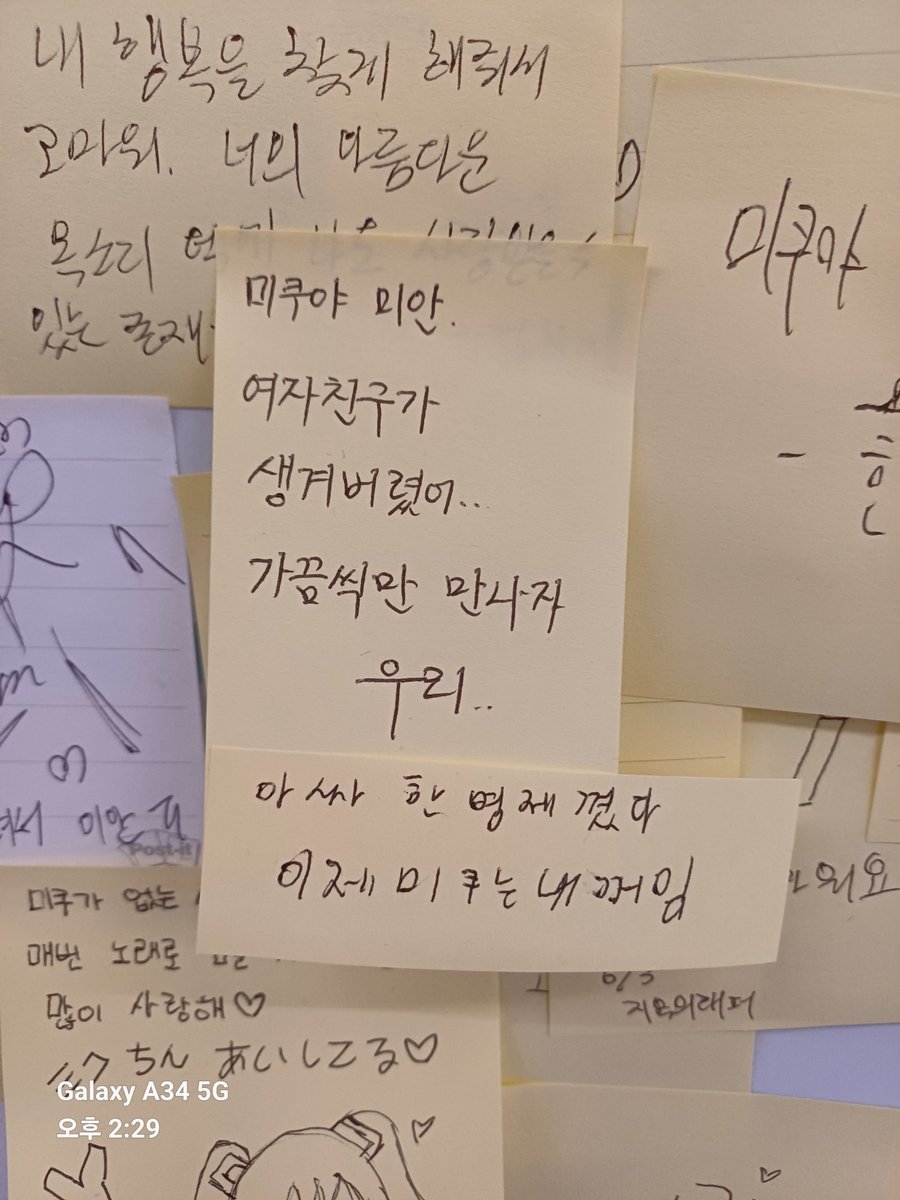 내 행복을 찾게 해줘서
고마워. 너의 아름다운
목소리
있는 존재
미쿠야
미쿠야 미안.
여자친구가
생겨버렸어..
가끔씩만 만나자
우리..
아싸 한 명 제꼈다
이제 미쿠는 내꺼임
Post-it
미쿠가 없는
매번 노래로
많이 사랑해♡
ミク ちん あいしてる♡
지옥의래퍼
Galaxy A34 5G
오후 2:29